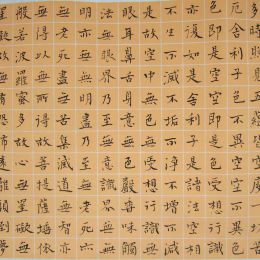 多時照見五蘊皆空度一切苦
厄舍利子色不異空空不異色
色即是空空即是色受想行識
亦復如是舍利子是諸法空相
不生不滅不垢不淨不增不減
是故空中無色無受想行識無
眼耳鼻舌身意無色聲香味觸
法無眼界乃至無意識界無無
明亦無無明盡乃至無老死亦
無老死盡無苦集滅道無智亦
無得以無所得故菩提薩埵依
般若波羅蜜多故心無罣礙無
罣礙故無有恐怖遠離顛倒夢